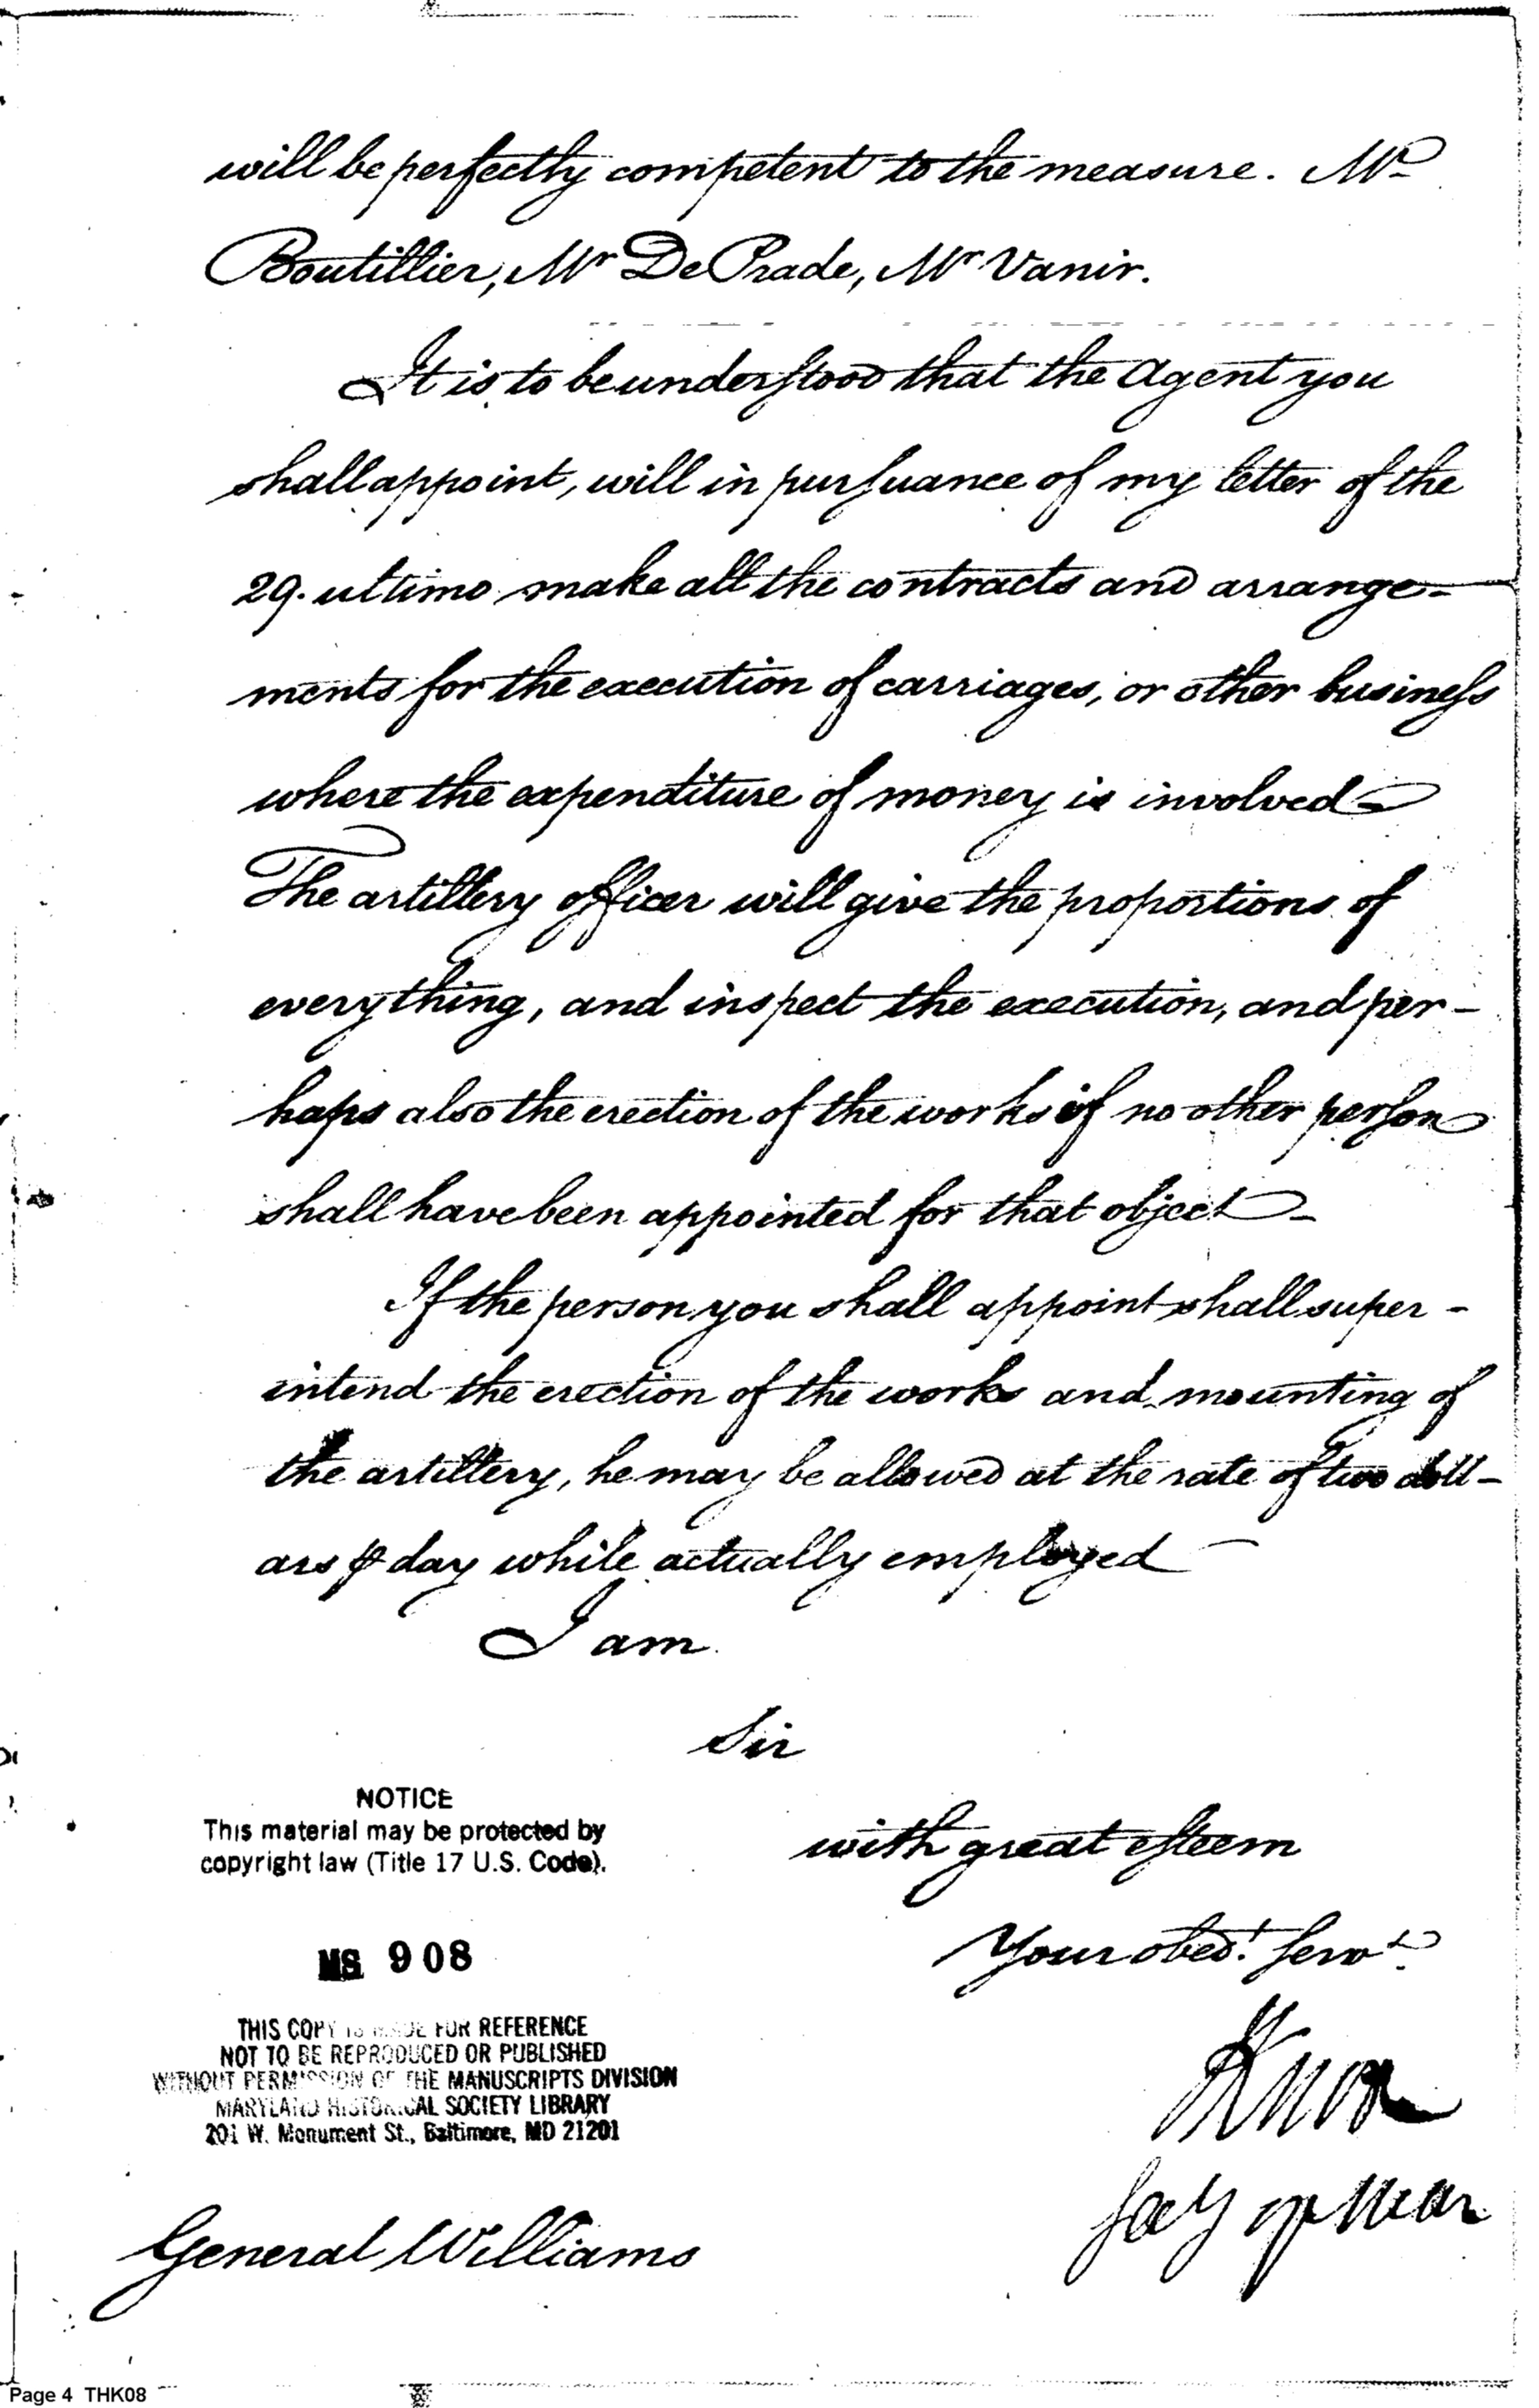 will be perfectly competent to the measure. Mr
Boutillier, Mr De Prade, Mr Vanir.
It is to be understood that the Agent you
shall appoint, will in pursuance of my letter of the
29. ultimo make all the contracts and arrange-
ments for the execution of carriages, or other business
where the expenditure of money is involved
The artillery officer will give the proportions of
everything, and inspect the execution, and per-
haps also the erection of the works if no other person
shall have been appointed for that object -
If the person you shall appoint shall super-
intend the erection of the works and mounting of
the artillery, he may be allowed at the rate of two doll-
ars ⅌ day while actually employed
I am
Sir
with great esteem
Your obedt. Servt.
HKnox
Secy of War
NOTICE
This material may be protected by
copyright law (Title 17 U.S. Code).
MS 908
THIS COPY IS MADE FOR REFERENCE
NOT TO BE REPRODUCED OR PUBLISHED
WITHOUT PERMISSION OF THE MANUSCRIPTS DIVISION
MARYLAND HISTORICAL SOCIETY LIBRARY
201 W. Monument St., Baltimore, MD 21201
General Williams
Page 4 THK08